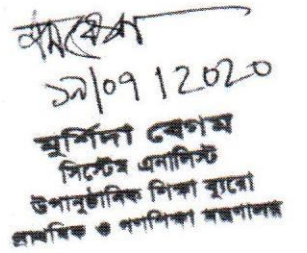 ১৯/০৭/2020
মুর্শিদা বেগম
সিস্টেম এনালিস্ট
উপানুষ্ঠানিক শিক্ষা ব্যুরো
প্রাথমিক ও গণশিক্ষা মন্ত্রণালয়